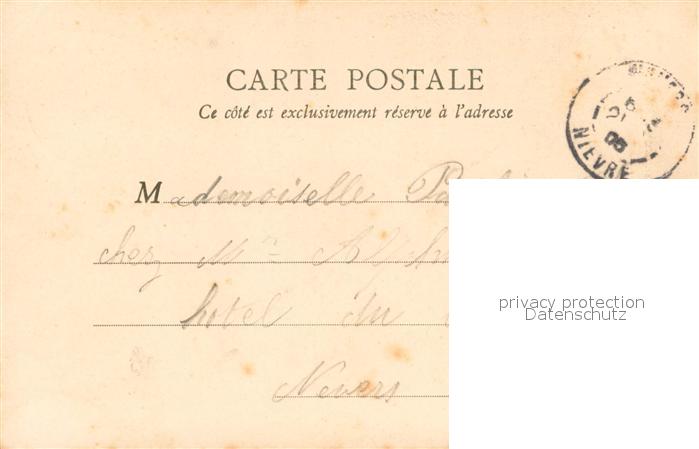 CARTE POSTALE
Ce côté est exclusivement réservé à l'adresse
NIEVRE
05
Mademoiselle
chez Mr
hotel du
Nevers
privacy protection
Datenschutz